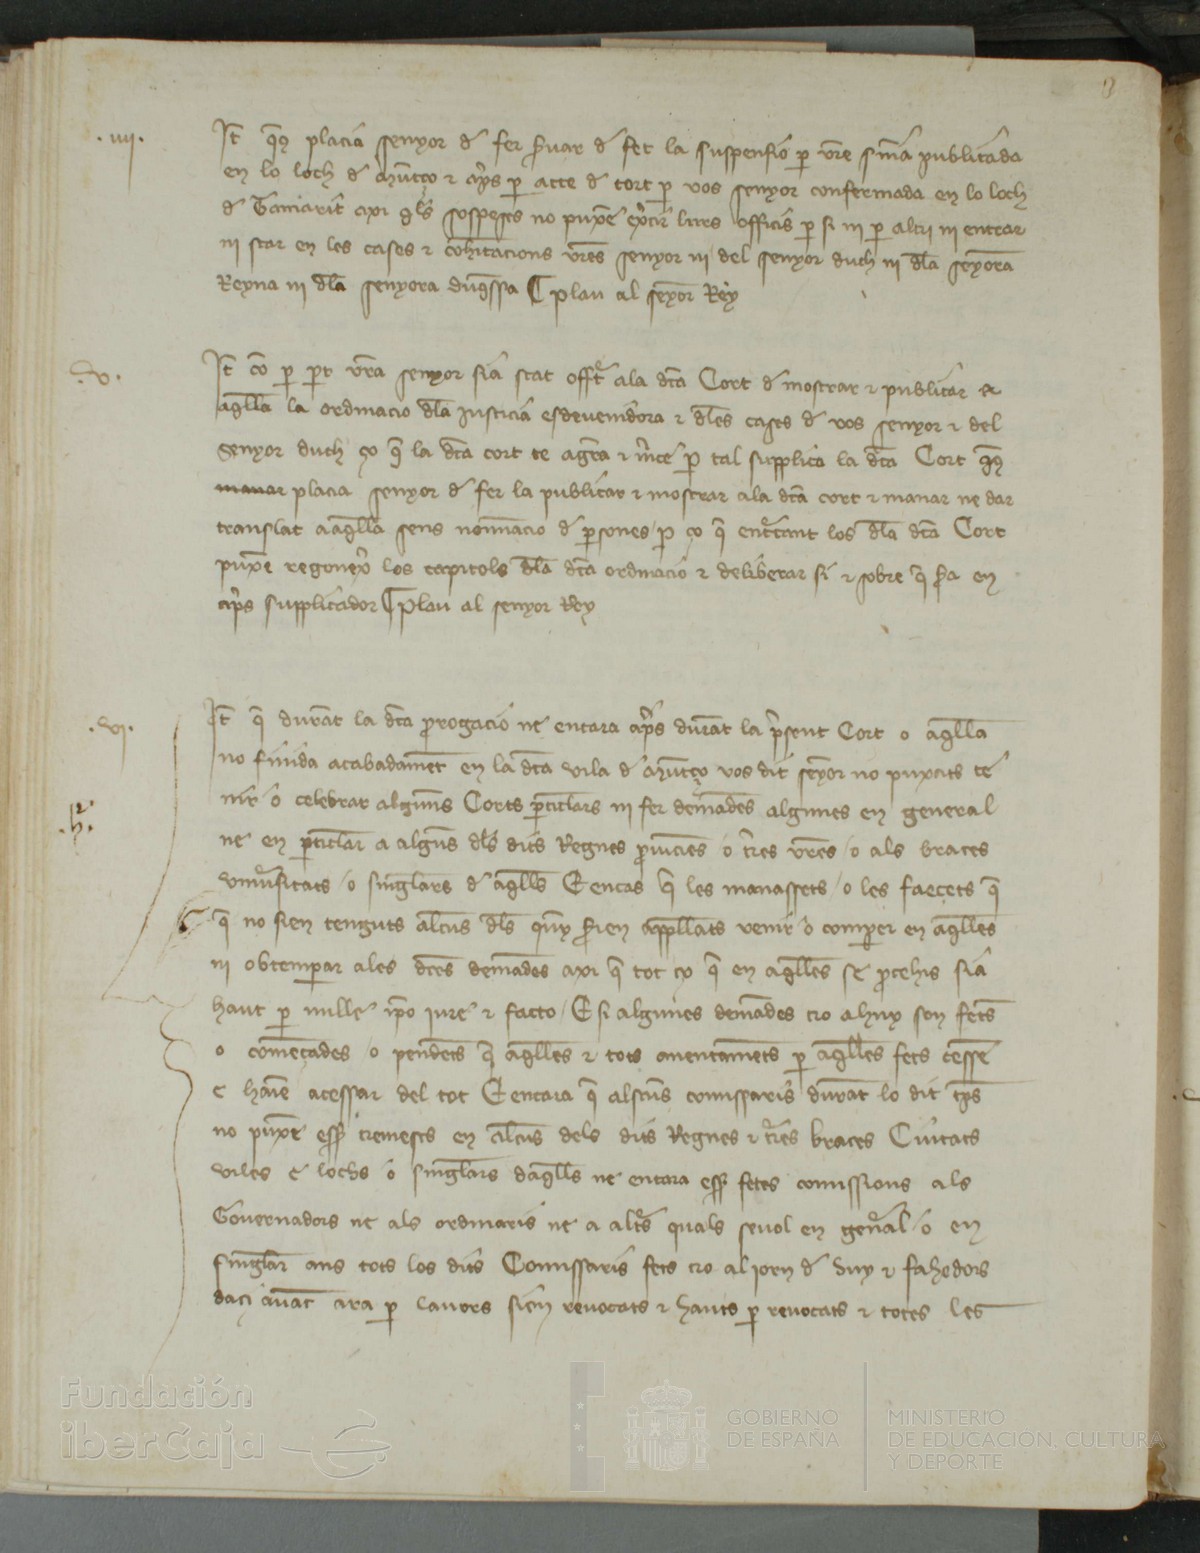 8
.iiij.
It q̃us placia senyor d fer s̃uar d fet la suspensio p̱ v̄re s̃nia publicada
en lo loch d mūtço ⁊ ap̃s p̱ acte d cort p̱ vos senyor confermada en lo loch
d Tamarit axi q̃ls sospeses no puxē ex̃cir lurs officis p̱ si ni p̱ altri ni entrar
ni star en les cases ⁊ cohitacions v̄res senyor ni del senyor duch ni dla senyora
Reyna ni dla senyora duq̄ssa ¶ plau al senyor Rey
.v.
It co p̱ part v̄ra senyor sia stat offert ala dc̄a Cort d mostrar ⁊ publicar
aq̄lla la ordinacio dla Justicia esdevenidora ⁊ dles cases d vos senyor ⁊ del
Senyor duch ço q̄ la dc̄a cort te agr̄a ⁊ m̃ce p̱ tal supplica la dc̄a Cort q̃us
manar placia senyor d fer la publicar ⁊ mostrar ala dc̄a cort ⁊ manar ne dar
translat a aq̄lla sens nominacio d p̱sones / p̱ ço q̄ ent̃tant los dla dc̄a Cort
puxē regonex̃ los capitols dla dc̄a ordinacio ⁊ deliberar si ⁊ sobre q̄ s̃a en
ap̃s supplicador ¶ Plau al senyor Rey
.vi.
It q̄ durāt la dc̄a p̃rogacio ne encara ap̃s durāt la p̃sent Cort o aq̄lla
no finida acabadamēt en la dc̄a vila d mūtço vos dit senyor no puxats te
nir o celebrar algūns Corts p̱ticlars ni fer demādes algunes en general
ne en p̱ticlar a algūs dls dits Regnes p̃uincies o t̃res v̄res / o als braces
vniũsitats / o singlars d aq̄lls E encas q̄ les manassets / o les faeçets q̄
q̄ no sien tenguts alcūs dls quj s̃ien appllats venir o comp̱er en aq̄lles
ni obtemp̱ar ales dc̄es demādes axi q̄ tot ço q̄ en aq̄lles se p̃cehis sia
haut p̱ nulle ip̃o iure ⁊ facto / E si algunes demādes tro a huy son fetes
o començades / o pendēts q̄ aq̄lles ⁊ tots anentamēts p̱ aq̄lles fets cessē
e hajē acessar del tot E encara q̄ alscūs comissaris durāt lo dit tp̄s
no puxē ess̃ tremeses en alcūs dels dits Regnes ⁊ t̃res braces Ciutats
viles e lochs o singlars daq̄lls ne encara ess̃ fetes comissions als
Governadors ne als ordinaris ne a altr̄s quals sevol en gen̄al o en
singlar ans tots los dits Comissaris fets tro al jorn d huy ⁊ fahedors
daci auāt ara p̱ lavors sien revocats ⁊ hauts p̱ revocats ⁊ totes les
Fundación
iberCaja
GOBIERNO
DE ESPAÑA
MINISTERIO
DE EDUCACIÓN, CULTURA
Y DEPORTE